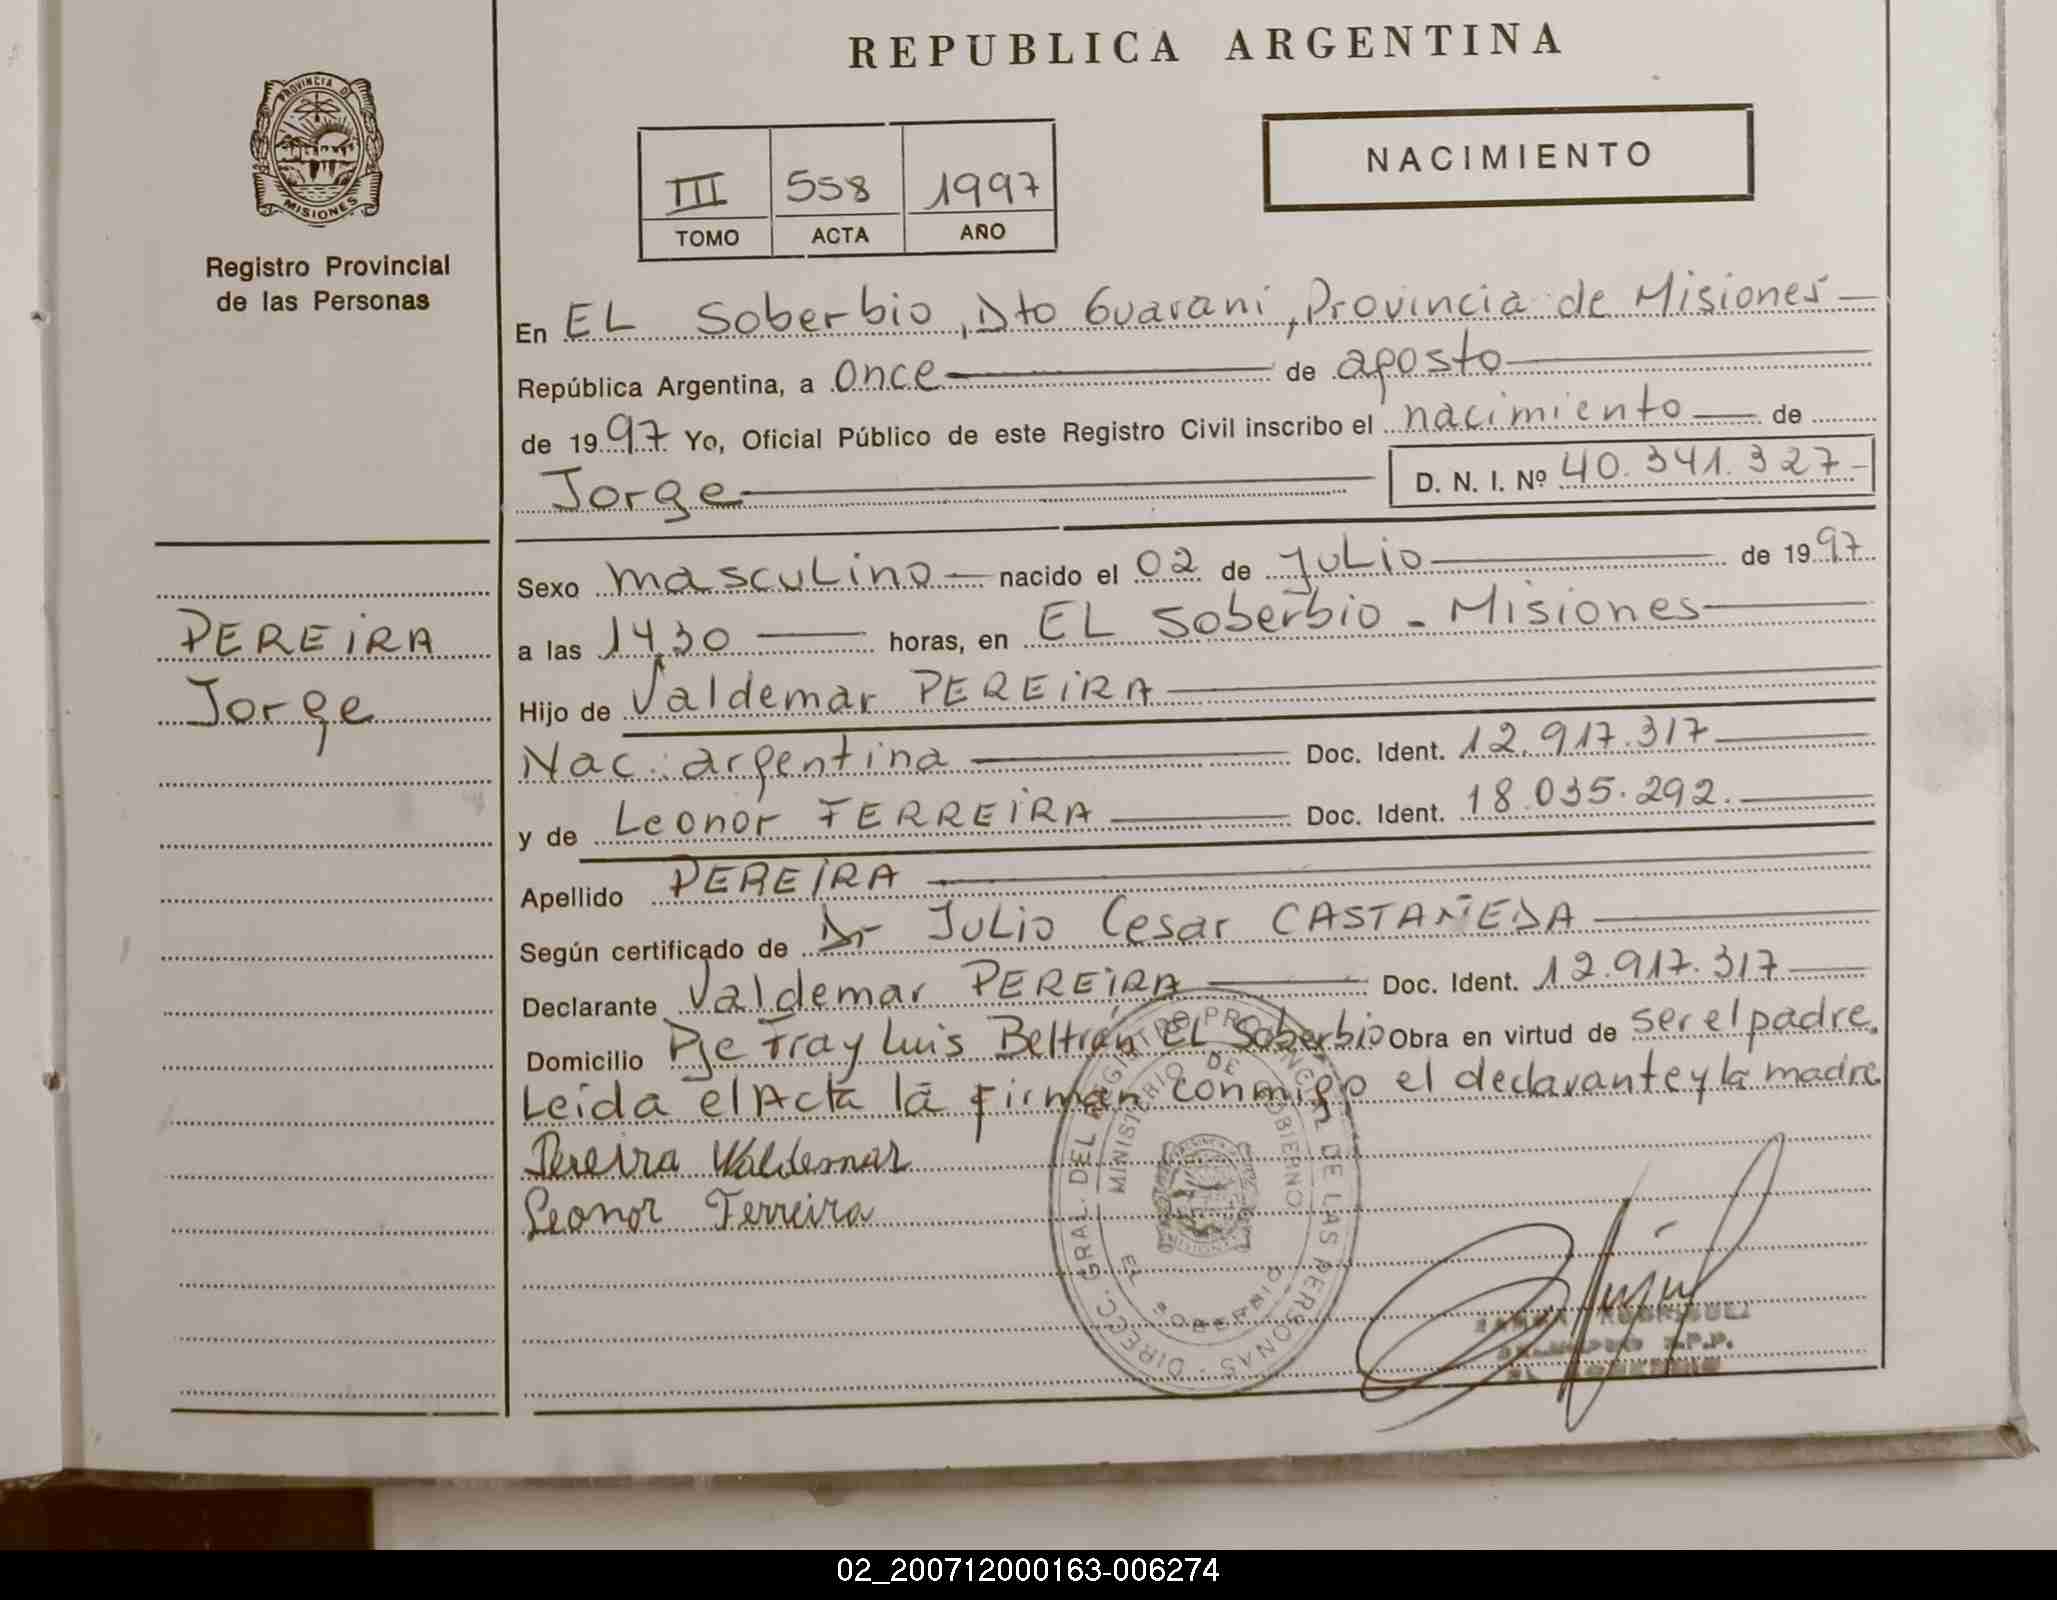 REPUBLICA ARGENTINA
PROVINCIA D
MISIONES
Registro Provincial
de las Personas
III 558 1997
TOMO ACTA AÑO
NACIMIENTO
En EL Soberbio, Dto Guarani, Provincia de Misiones
República Argentina, a once de agosto
de 1997 Yo, Oficial Público de este Registro Civil inscribo el nacimiento de
Jorge D. N. I. Nº 40.341.327
PEREIRA
Jorge
Sexo masculino nacido el 02 de Julio de 1997
a las 14,30 horas, en EL Soberbio - Misiones
Hijo de Valdemar PEREIRA
Nac: argentina Doc. Ident. 12.917.317
y de Leonor FERREIRA Doc. Ident. 18.035.292.
Apellido PEREIRA
Según certificado de Dr Julio Cesar CASTAÑEDA
Declarante Valdemar PEREIRA Doc. Ident. 12.917.317
Domicilio Pje Fray Luis Beltrán EL Soberbio Obra en virtud de ser el padre.
Leida el Acta la firman conmigo el declarante y la madre
Pereira Waldemar
Leonor Ferreira
DIRECC. GRAL. DEL REGISTRO PROVINCIAL DE LAS PERSONAS
MINISTERIO DE GOBIERNO
EL SOBERBIO
RODRIGUEZ
R.P.P.
02_200712000163-006274